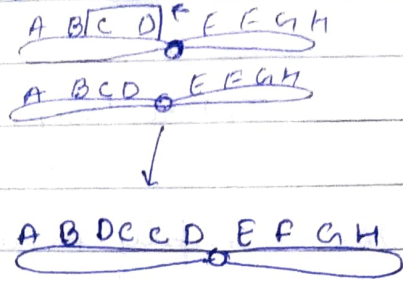 A B C D E F G H
A B C D E F G H
A B D C C D E F G H